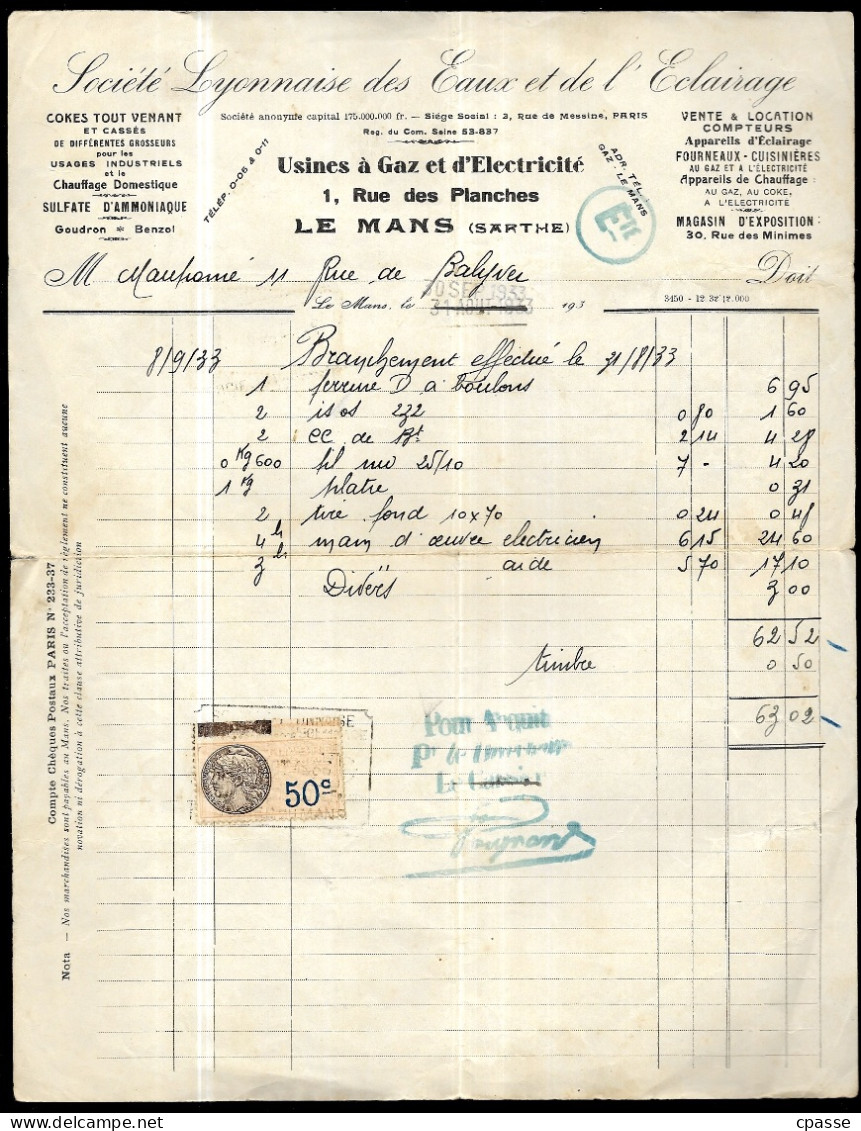 Société Lyonnaise des Eaux et de l'Eclairage
Société anonyme capital 175.000.000 fr. — Siège Social : 3, Rue de Messine, PARIS
Reg. du Com. Seine 53-837
COKES TOUT VENANT
ET CASSÉS
DE DIFFÉRENTES GROSSEURS
pour les
USAGES INDUSTRIELS
et le
Chauffage Domestique
SULFATE D'AMMONIAQUE
Goudron * Benzol
TÉLÉP. 0-06 & 0-11
Usines à Gaz et d'Electricité
1, Rue des Planches
LE MANS (SARTHE)
ADR. TÉL. :
GAZ - LE MANS
VENTE & LOCATION
COMPTEURS
Appareils d'Éclairage
FOURNEAUX - CUISINIÈRES
AU GAZ ET A L'ÉLECTRICITÉ
Appareils de Chauffage :
AU GAZ, AU COKE,
A L'ELECTRICITÉ
MAGASIN D'EXPOSITION :
30, Rue des Minimes
M 11 Rue de Doit
30 SEP 1933
Le Mans, le 31 AOUT 1933 193
3450 - 12.32 12.000
8/9/33 Branchement effectué le 31/8/33
1 ferrure D à boulons 6 95
2 isos 232 0 80 1 60
2 CC de Bt 2 14 4 28
0 Kg 600 fil nu 25/10 7 - 4 20
1 Kg platre 0 31
2 tire fond 10x70 0 24 0 48
4 h main d'œuvre electricien 6 15 24 60
3 h aide 5 70 17 10
Divers 3 00
62 52
timbre 0 50
63 02
Pour Acquit
Le Caissier
50c
Compte Chèques Postaux PARIS N° 233-37
Nota — Nos marchandises sont payables au Mans. Nos traites ou l'acceptation de règlement ne constituent aucune
novation ni dérogation à cette clause attributive de juridiction
cpasse